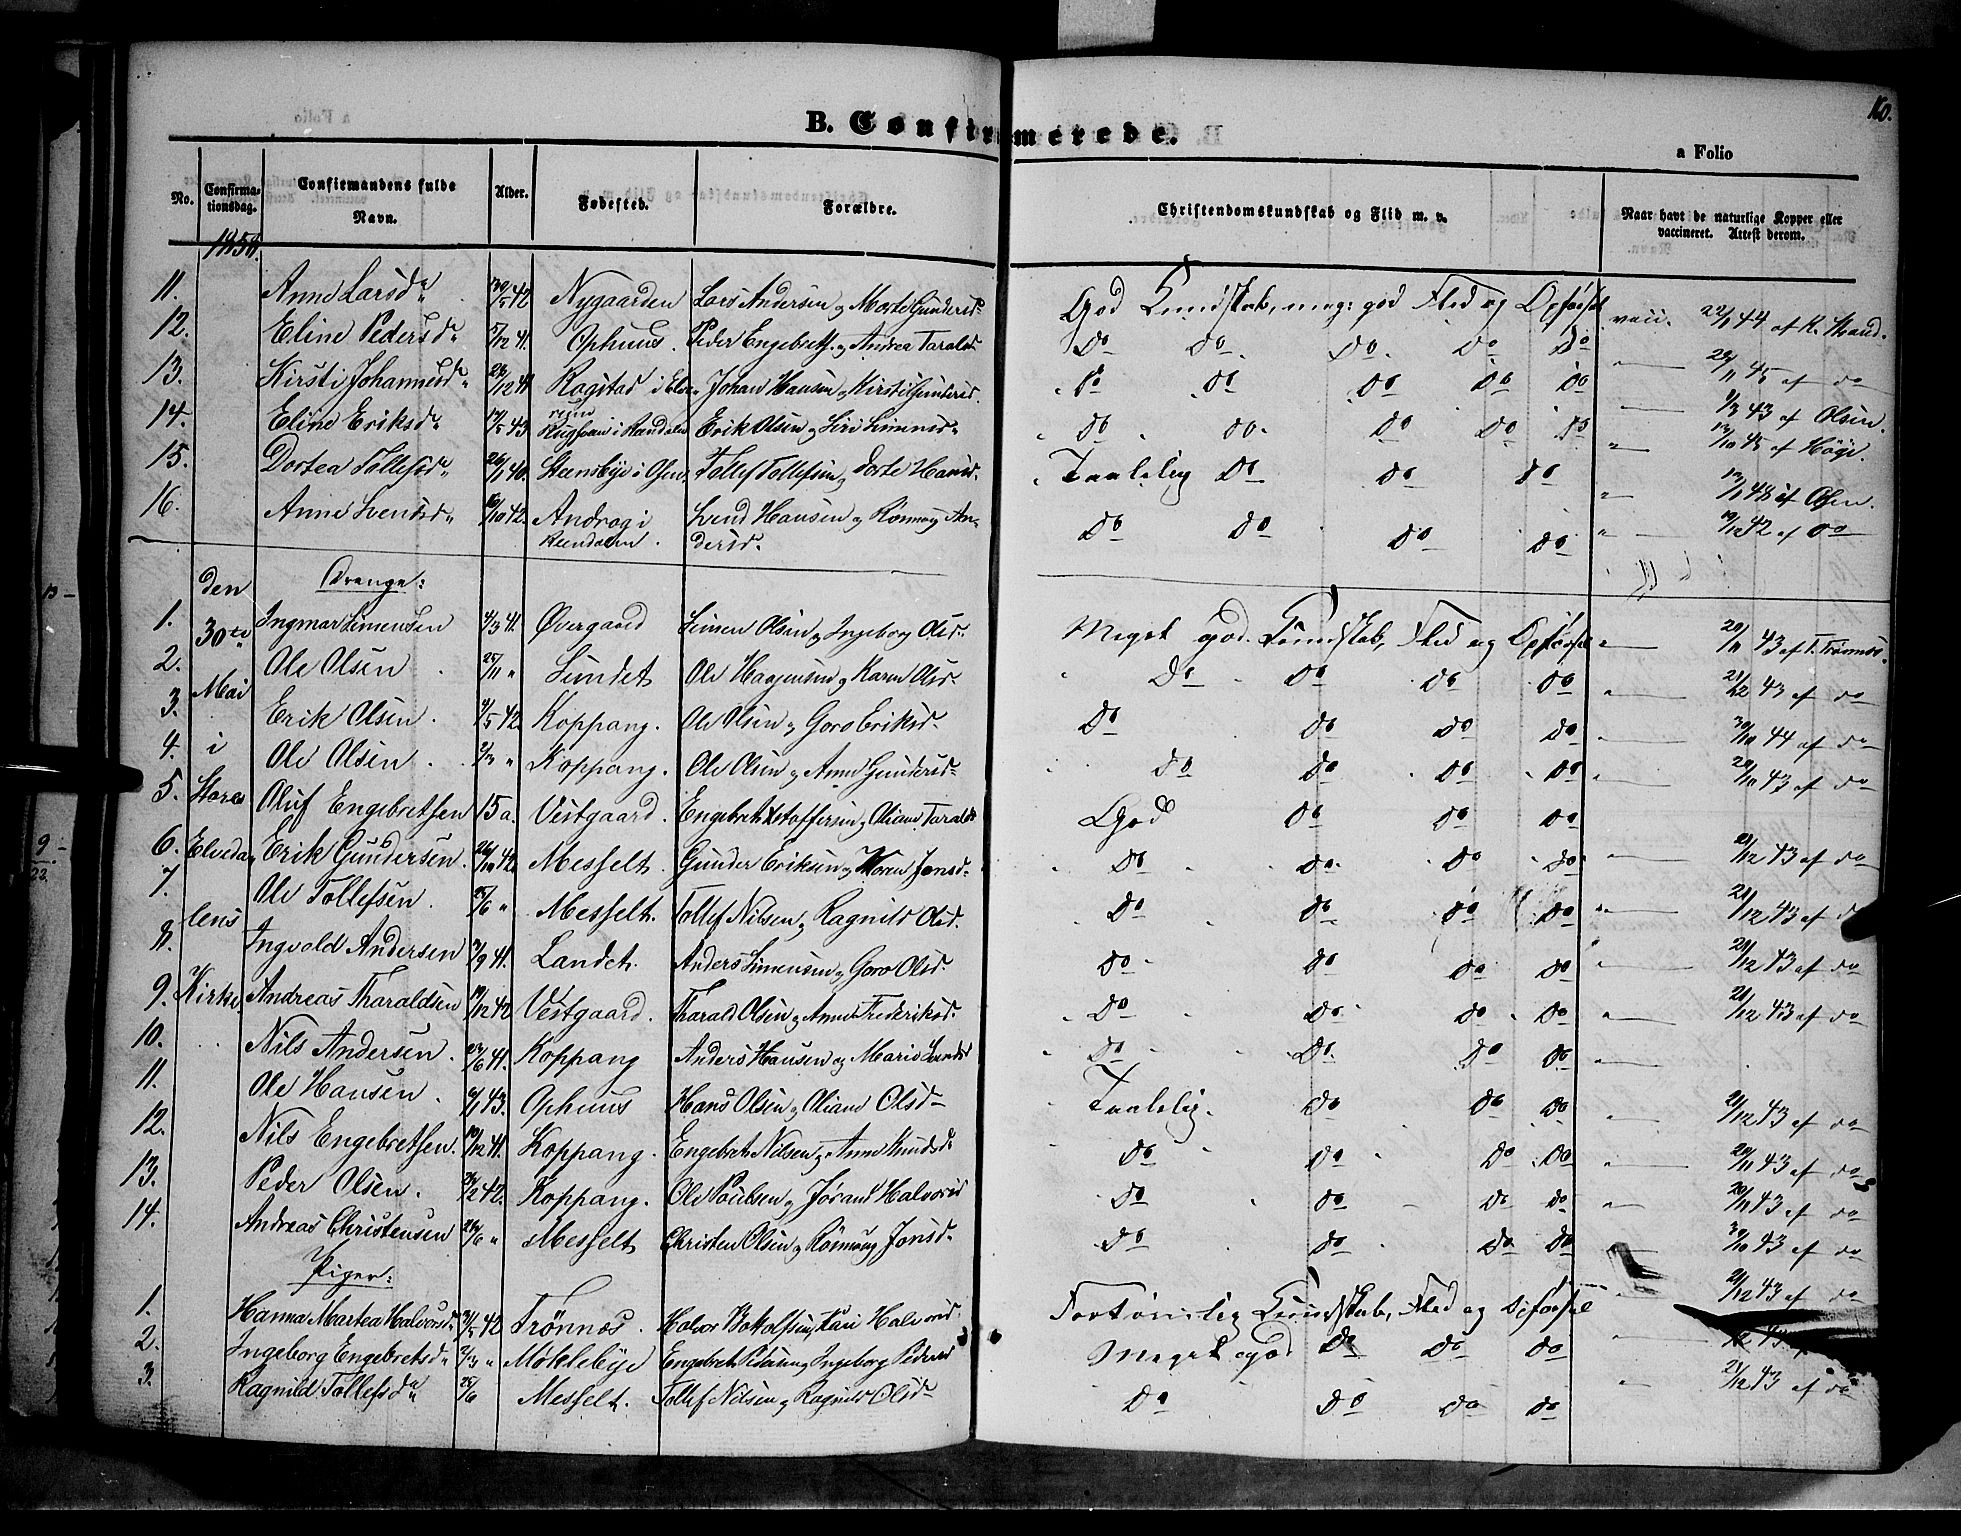 160.
B. Confirmerede.
a Folio
No. | Confirma-tionsdag. | Confirmandens fulde Navn. | Alder. | Fødested. | Forældre. | Christendomskundskab og Flid m. v. | Naar havt de naturlige Kopper eller vaccineret. Attest derom.
1856.
11. Anne Larsd. 42 Nygaarden Lars Andersen og Marte Gundersd. God Kundskab, meg: god Flid og Opførsel vacc. 44 af K. Strand.
12. Eline Pedersd. 41. Ophuus. Peder Engebrets. og Andrea Taralsd. Do Do Do Do Do 45 af do
13. Kirsti Johannesd. 12 41 Rogstad i Elve- Johan Hansen og Kirsti Gundersd. Do Do Do Do Do 43 af Olsen.
rum
14. Eline Eriksd. 17/5 43 i Rendalen Erik Olsen og Siri Simensd. Do Do Do Do Do 45 af Høye.
15. Dortea Tollefsd. 26/1 40. Steensbye i Osen, Tollef Tollefsen og Dorte Hansd. Taalelig Do Do Do 48 af Olsen.
16. Anne Svendsd. 16/10 42. Androg i Svend Hansen og Rønnoug An- Do Do Do Do 42 af Do
Rendalen. dersd.
den Drenge:
1. 30te Ingmar Simensen 4/3 41. Øvergaard Simen Olsen og Ingeborg Olsd. Meget god Kundskab, Flid og Opførsel 20/11 43 af T. Trønnes.
2. Ole Olsen 25/11 " Sundet Ole Haagensen og Karen Olsd. Do Do Do Do 43 af do
3. Mai Erik Olsen. 4/5 42. Koppang. Ole Olsen og Goro Eriksd. Do Do Do Do 30/10 44 af do
4. i Ole Olsen. " Koppang. Ole Olsen og Anne Gundersd. Do Do Do Do 20/10 43 af do
5. Store Oluf Engebretsen 15 a. Vestgaard. Engebret Kristoffersen og Oliane Taralsd. God Do Do Do
6. Elveda- Erik Gundersen. 26/10 42. Messelt. Gunder Eriksen og Karen Jonsd. Do Do Do Do 21/12 43 af do
7. Ole Tollefsen. 25/6 " Messelt. Tollef Nilsen og Ragnild Olsd. Do Do Do Do 21/12 43 af do
lens
8. Ingvald Andersen 3/9 41. Landet. Anders Simensen og Goro Olsd. Do Do Do Do 21/12 43 af do
9. Kirke, Andreas Tharaldsen 19/12 42 Vestgaard. Tharald Olsen og Anne Frederiksd. Do Do Do Do 21/12 43 af do
10. Nils Andersen. 23/6 41. Koppang Anders Hansen og Marie Do Do Do Do
11. Ole Hansen. 6/1 43. Ophuus Hans Olsen og Oliane Olsd. Taalelig. Do Do Do 21/12 43 af do
12. Nils Engebretsen. 10/12 41. Koppang. Engebret Nilsen og Anne Knudsd. Do Do Do Do 20/11 43 af do
13. Peder Olsen. 2 42. Koppang. Ole Poulsen og Jørand Halvorsd. Do Do Do Do 20/11 43 af do
14. Andreas Christensen 26/6 " Messelt Christen Olsen og Rønnoug Jonsd. Do Do Do Do 30/10 43 af do
Piger:
1. Hanna Martea Halvorsd. 42 Trønnæs. Halvor Botolfsen og Kari Halvorsd. Fortrinlig Kundskab, Flid og Opførsel 21/12 43 af do
2. Ingeborg Engebretsd. " Møklebye Engebret Pedersen og Ingeborg Pedersd. Meget god Do Do Do 12 43
3. Ragnild Tollefsd. 25/6 Messelt. Tollef Nilsen og Ragnild Olsd. Do Do Do Do 21/12 43 af do